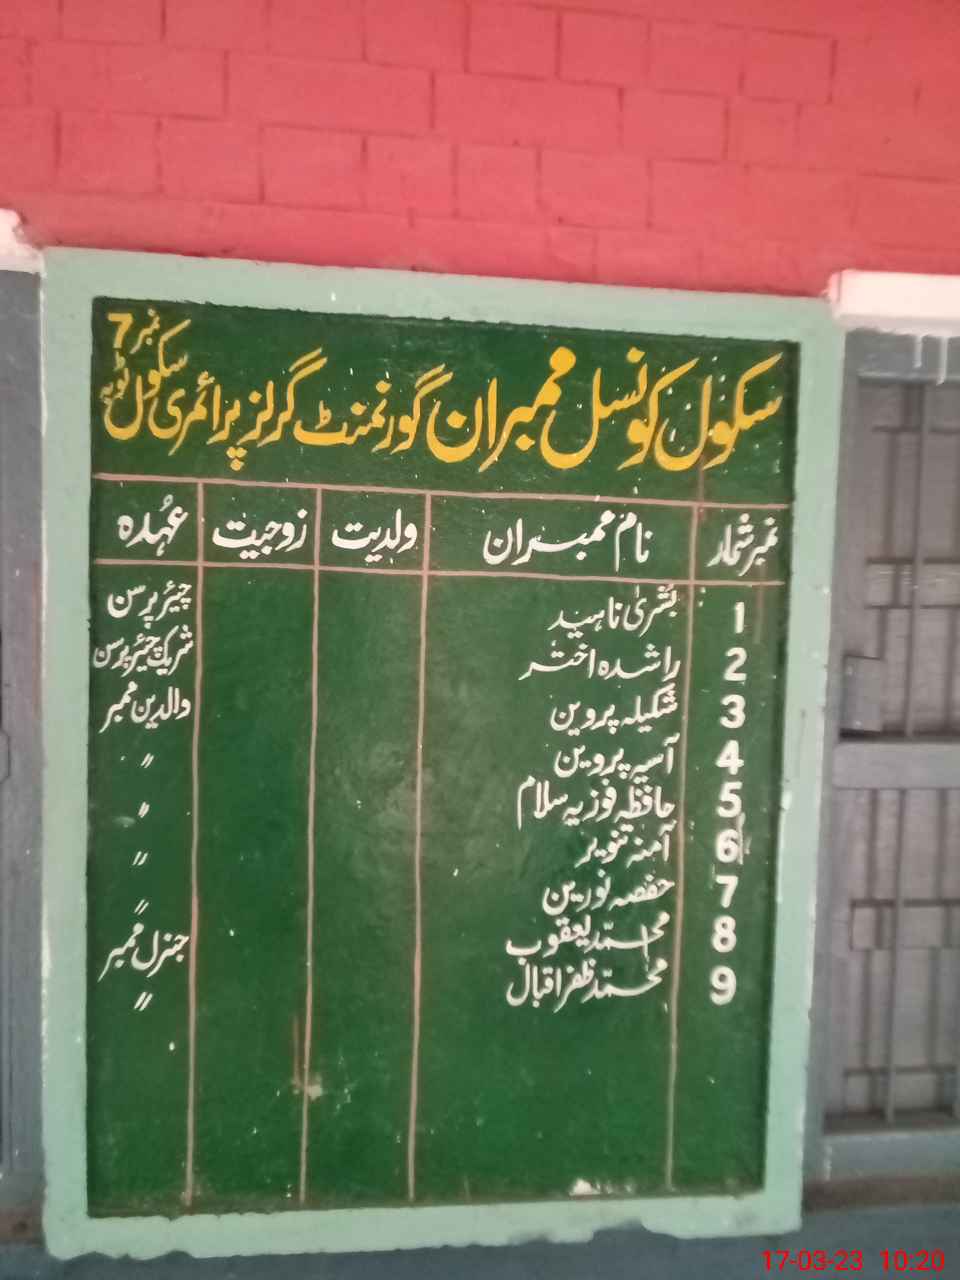 سکول کونسل ممبران گورنمنٹ گرلز پرائمری سکول نمبر 7 ٹوبہ
نمبر شمار نام ممبران ولدیت زوجیت عہدہ
1 بشریٰ ناہید چیئرپرسن
2 راشدہ اختر شریک چیئرپرسن
3 شکیلہ پروین والدین ممبر
4 آسیہ پروین 〃
5 حافظہ فوزیہ سلام 〃
6 آمنہ تنویر 〃
7 حفصہ نورین 〃
8 محمد یعقوب جنرل ممبر
9 محمد ظفر اقبال 〃
17-03-23 10:20